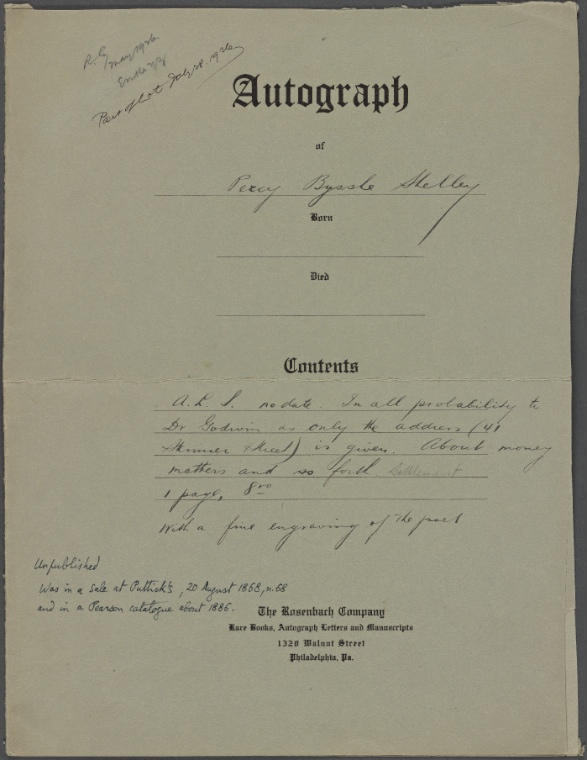 May 1926
Part of lot July 28. 1926
Autograph
of
Percy Bysshe Shelley
Born
Died
Contents
A. L. S. no date. In all probability to
Dr Godwin as only the address (41
Skinner Street) is given. About money
matters and so forth Settlement
1 page, 8vo
With a fine engraving of the poet
Unpublished
Was in a Sale at Puttick's, 20 August 1868, n. 68
and in a Pearson catalogue about 1886.
The Rosenbach Company
Rare Books, Autograph Letters and Manuscripts
1320 Walnut Street
Philadelphia, Pa.